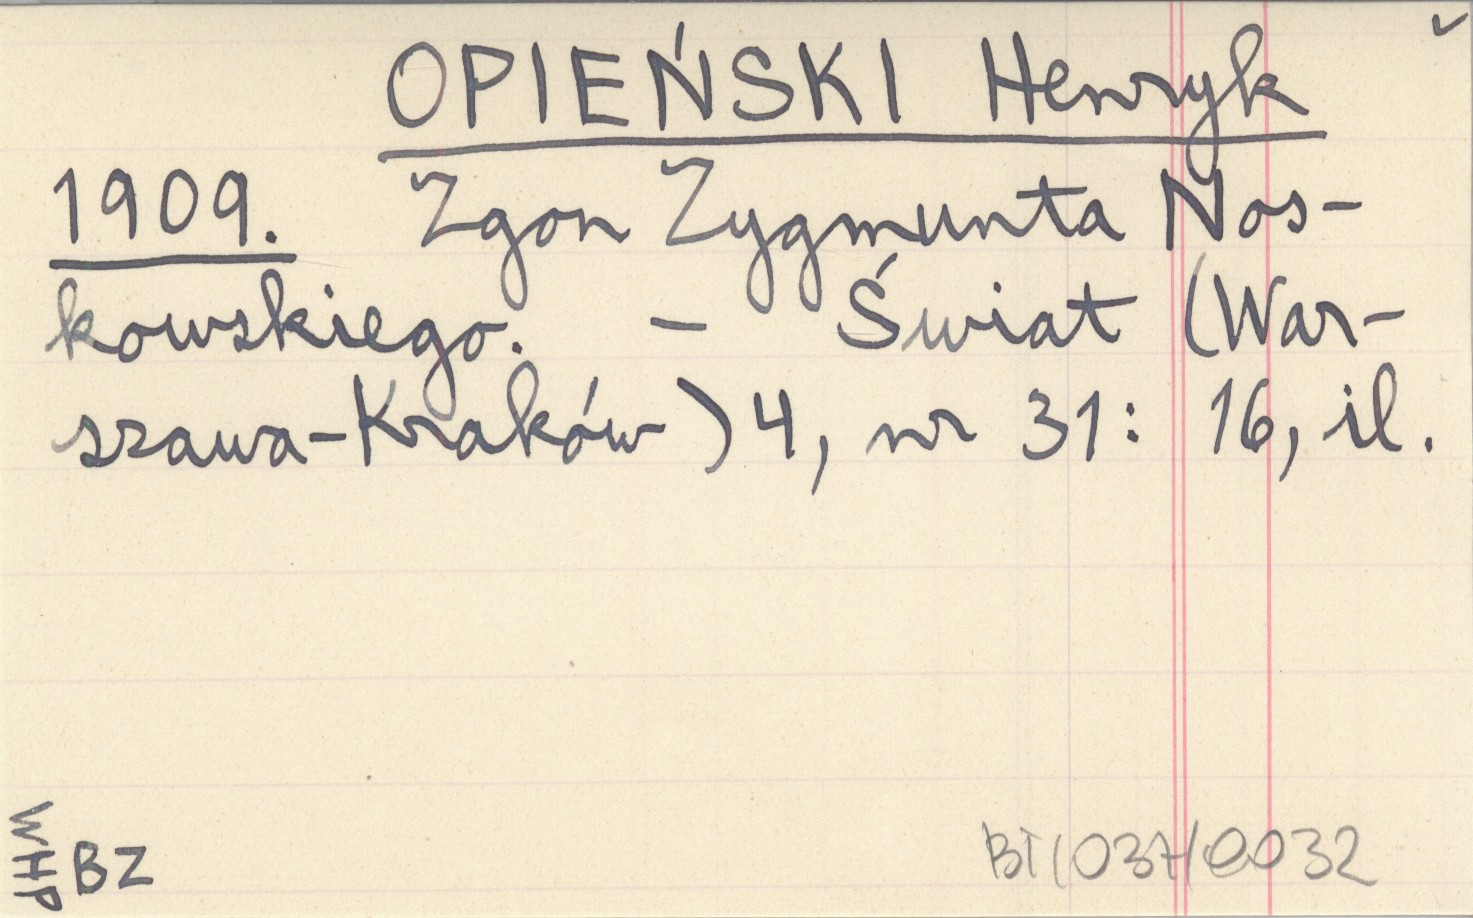 OPIEŃSKI Henryk
1909. Zgon Zygmunta Nos-
kowskiego. - Świat (War-
szawa-Kraków) 4, nr 31: 16, il.
WHP
BZ
BT/037/0032